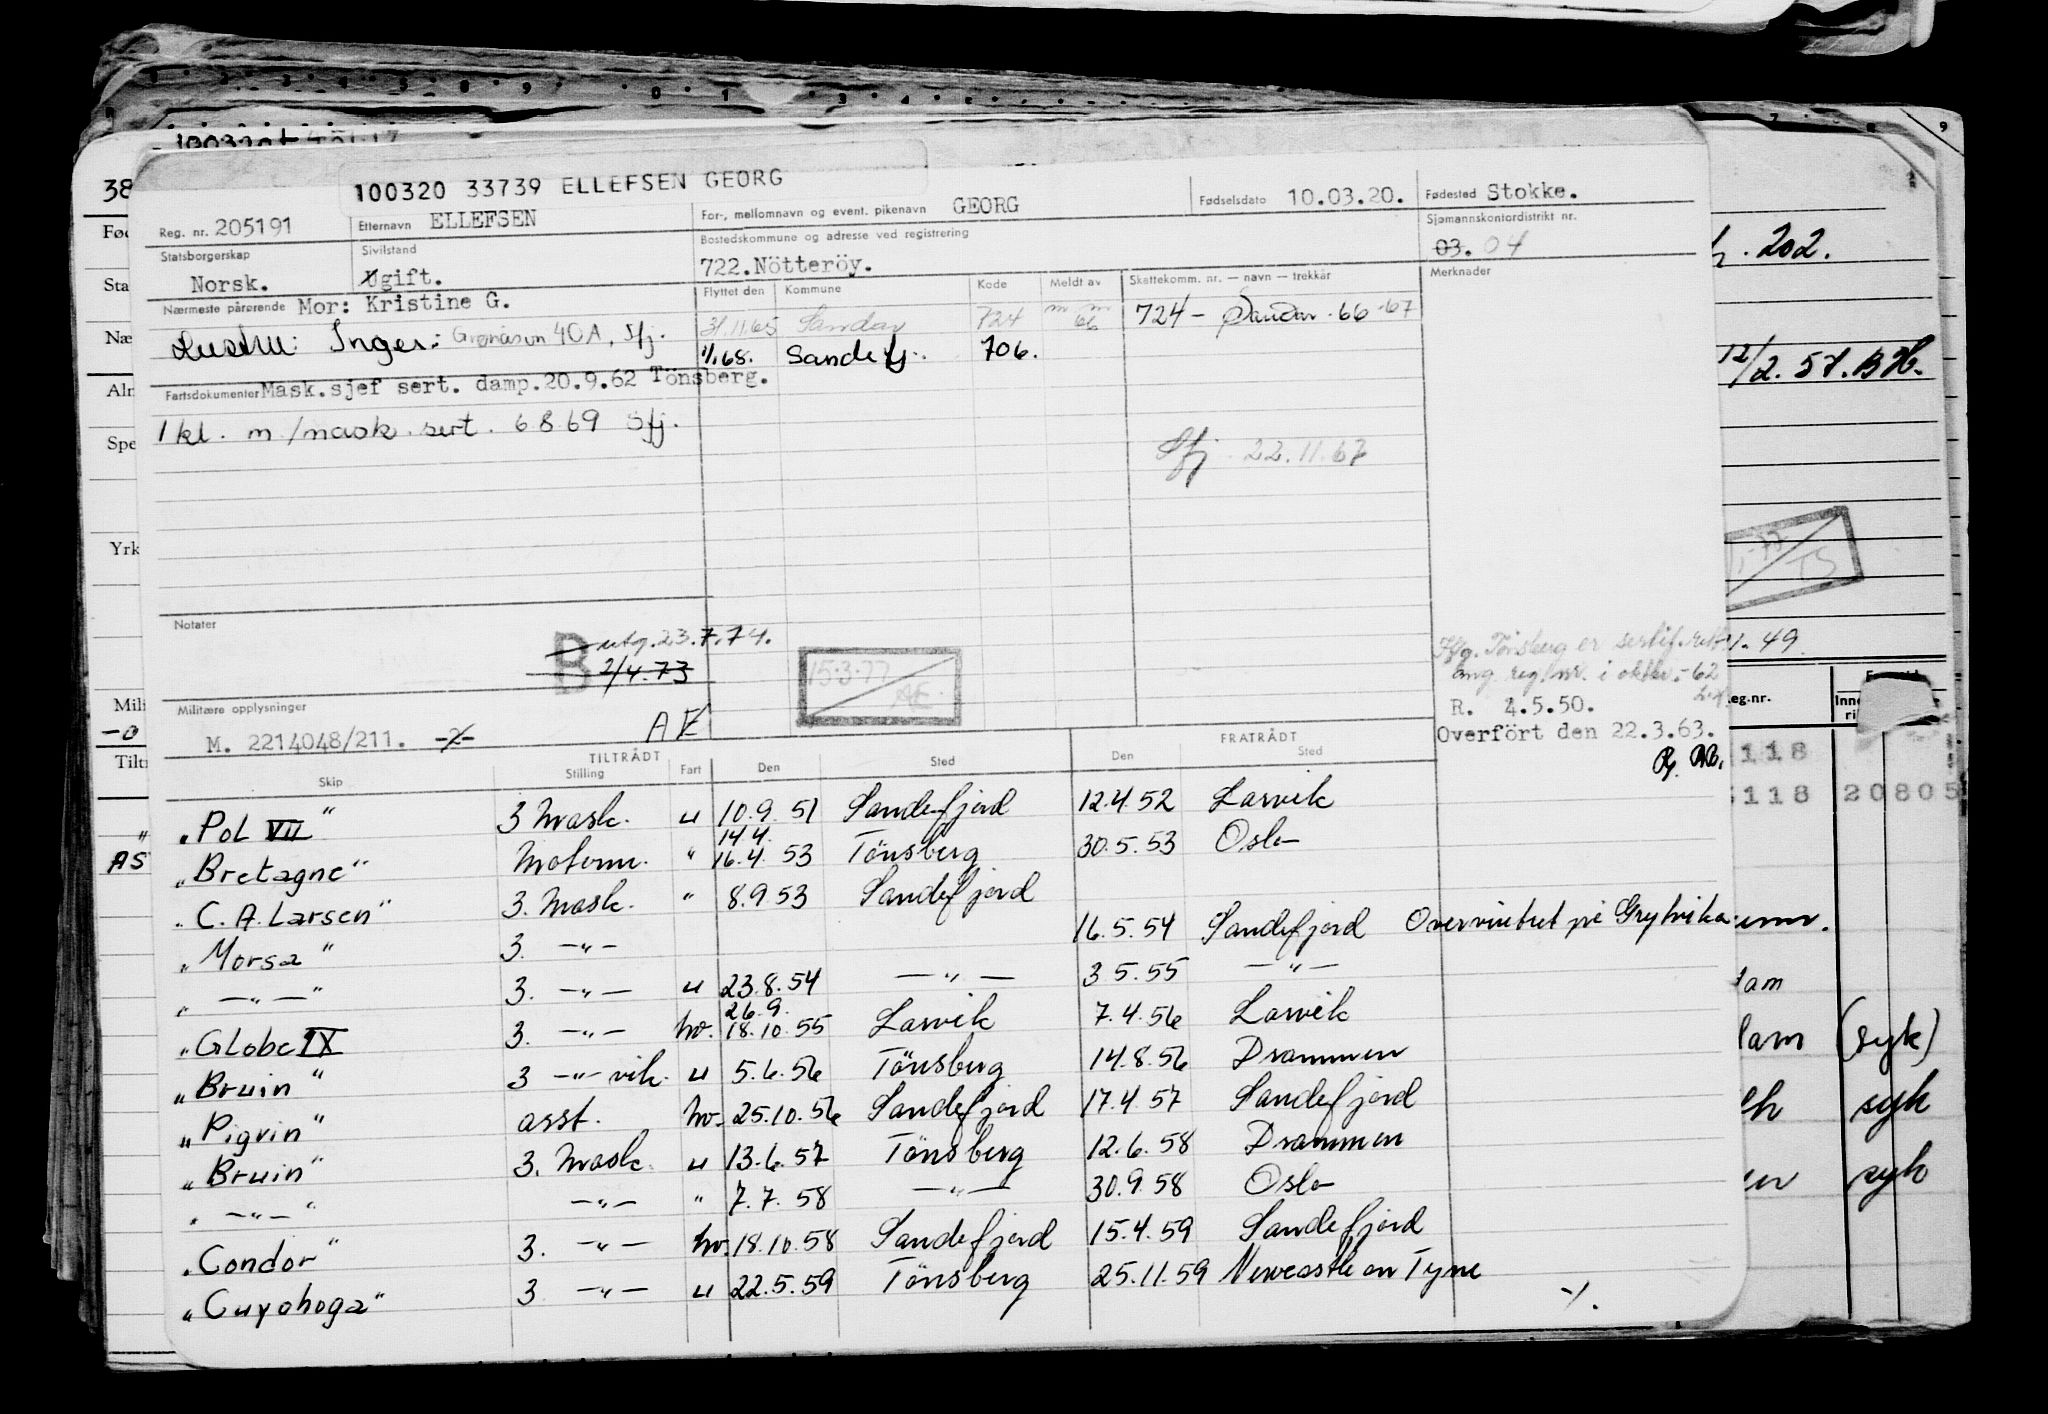 100320 33739 ELLEFSEN GEORG
Reg. nr. 205191 Etternavn ELLEFSEN For-, mellomnavn og event. pikenavn GEORG Fødselsdato 10.03.20. Fødested Stokke.
Statsborgerskap Norsk. Sivilstand Ugift. Bostedskommune og adresse ved registrering 722.Nötteröy. Sjømannskontordistrikt nr. 03. 04
Nærmeste pårørende Mor: Kristine G. Flyttet den Kommune Kode Meldt av Skattekomm. nr. — navn — trekkår Merknader
Hustru: Inger: Grønåsvn 40A, Sfj. 31/11.65 Sandar 724 66 724 - Sandar 66-67
1/1.68. Sandefj. 706.
Fartsdokumenter Mask.sjef sert. damp.20.9.62 Tönsberg.
1 kl. m/mask. sert. 6869 Sfj.
Sfj. 22.11.67
Notater
B utg.23.7.74.
2/4.73
15.3.77 AE
Sfg. Tönsberg er sertif.
ang. reg.nr. i oktbr.-62
R. 4.5.50.
Overfört den 22.3.63.
Militære opplysninger
M. 2214048/211. -2- AE
TILTRÅDT FRATRÅDT
Skip Stilling Fart Den Sted Den Sted
"Pol VII" 3 Mask. u 10.9.51 Sandefjord 12.4.52 Larvik
14.4.
"Bretagne" Motorm. " 16.4.53 Tönsberg 30.5.53 Oslo
"C.A. Larsen" 3. Mask. " 8.9.53 Sandefjord
"Morsa" 3. -"- 16.5.54 Sandefjord Overvintret på Grytvika
" -"- " 3. -"- u 23.8.54 -"- 3.5.55 -"-
26.9.
"Globe IX" 3. -"- hv. 18.10.55 Larvik 7.4.56 Larvik
"Bruin" 3 -"- vik. u 5.6.56 Tönsberg 14.8.56 Drammen
"Pigvin" asst. hv. 25.10.56 Sandefjord 17.4.57 Sandefjord
"Bruin" 3. Mask. u 13.6.57 Tönsberg 12.6.58 Drammen
" -"- " -"- " 7.7.58 -"- 30.9.58 Oslo
"Condor" 3. -"- hv. 18.10.58 Sandefjord 15.4.59 Sandefjord
"Cuyohoga" 3 -"- u 22.5.59 Tönsberg 25.11.59 Newcastle on Tyne
./.
38
Fød
Sta
Næ
Aln
Spe
Yrk
Mili
-0
Tilt
AS
. 202.
12/2. 57. BH.
1.49
eg.nr.
118
118 20805
lam
lam (syk)
syk
syk